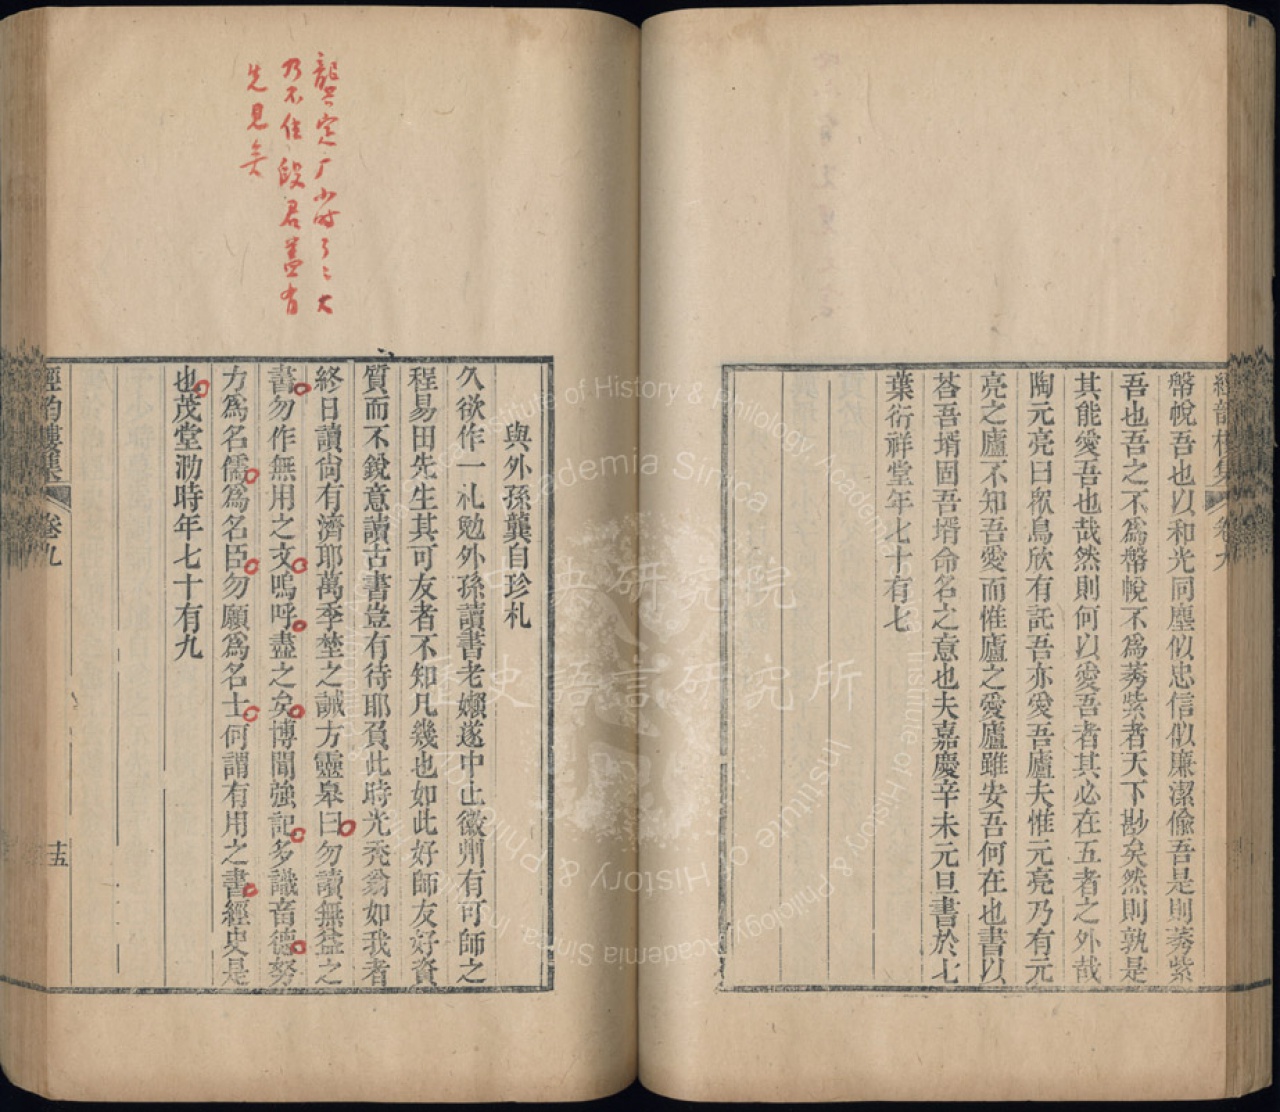 幣帨吾也以和光同塵似忠信似廉潔儉吾是則莠紫
吾也吾之不爲幣帨不爲莠紫者天下尟矣然則孰是
其能愛吾也哉然則何以愛吾者其必在五者之外哉
陶元亮曰衆鳥欣有託吾亦愛吾廬夫惟元亮乃有元
亮之廬不知吾愛而惟廬之愛廬雖安吾何在也書以
荅吾壻固吾壻命名之意也夫嘉慶辛未元旦書於七
葉衍祥堂年七十有七
龔定广少時了〻大
乃不佳段君蓋有
先見矣
與外孫龔自珍札
久欲作一札勉外孫讀書老嬾遂中止徽州有可師之
程易田先生其可友者不知凡幾也如此好師友好資
質而不銳意讀古書豈有待耶負此時光禿翁如我者
終日讀尙有濟耶萬季埜之誡方靈皋曰勿讀無益之
書勿作無用之文嗚呼盡之矣博聞強記多識畜德努
方爲名儒爲名臣勿願爲名士何謂有用之書經史是
也茂堂泐時年七十有九
經韵樓集 卷九
十五
中央研究院
歷史語言研究所
Institute of History & Philology, Academia Sinica